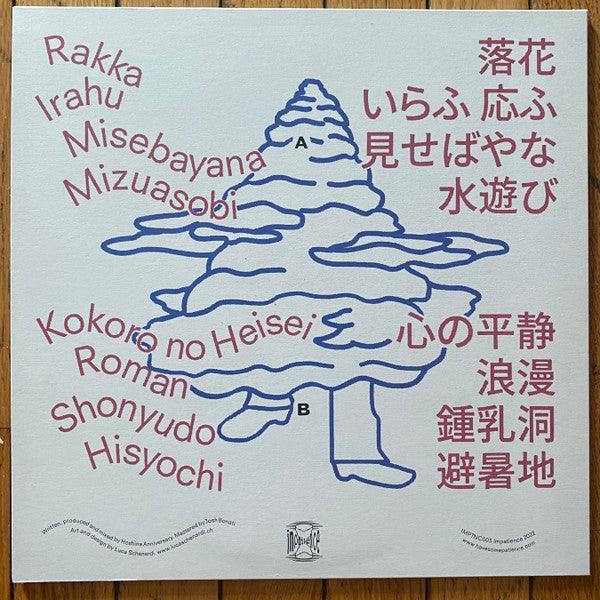 Rakka
Irahu
Misebayana
Mizuasobi
落花
いらふ 応ふ
見せばやな
水遊び
A
Kokoro no Heisei
Roman
Shonyudo
Hisyochi
心の平静
浪漫
鍾乳洞
避暑地
B
Written, produced and mixed by Hoshina Anniversary. Mastered by Josh Bonati
Art and design by Luca Schenardi. www.lucaschenardi.ch
Impatience
IMPTNC003 Impatience 2022
www.havesomepatience.com